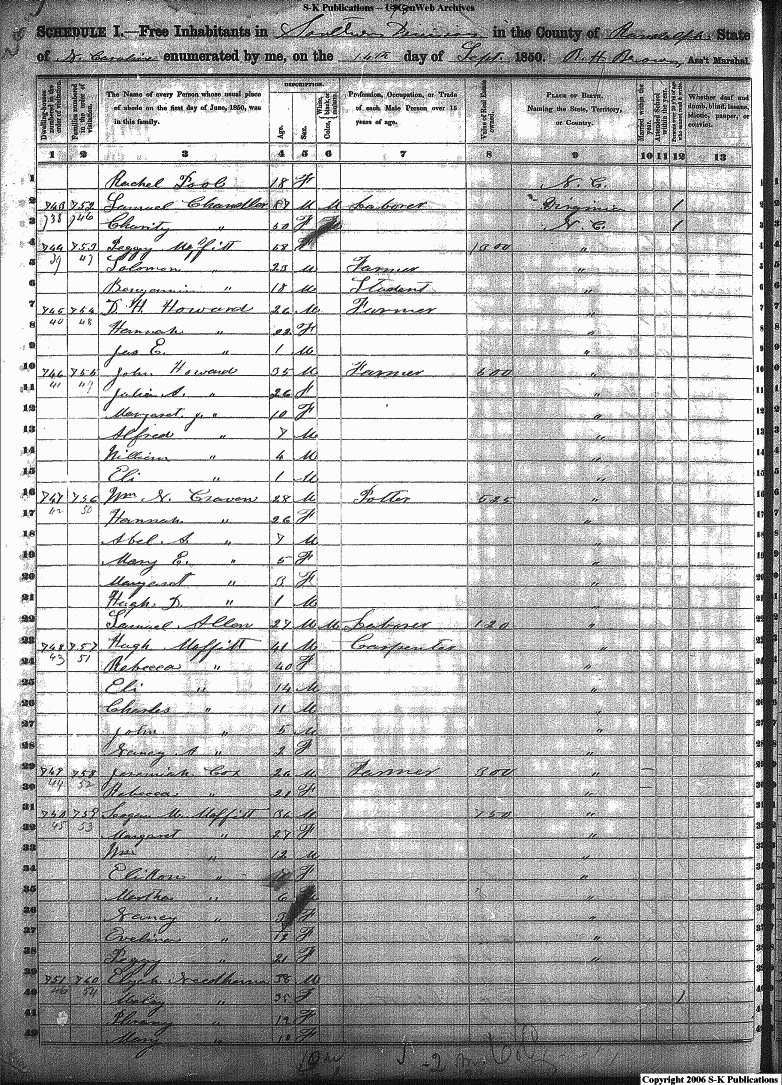 S-K Publications -- USGenWeb Archives
SCHEDULE I.—Free Inhabitants in Southern Division in the County of Randolph State
of N. Carolina enumerated by me, on the 14th day of Sept. 1850. B. H. Brown Ass't Marshal.
Dwelling-houses numbered in the order of visitation.
Families numbered in the order of visitation.
The Name of every Person whose usual place of abode on the first day of June, 1850, was in this family.
DESCRIPTION.
Age.
Sex.
Color, White, black or mulatto.
Profession, Occupation, or Trade of each Male Person over 15 years of age.
Value of Real Estate owned.
PLACE OF BIRTH. Naming the State, Territory, or Country.
Married within the year.
Attended School within the year.
Whether deaf and dumb, blind, insane, idiotic, pauper, or convict.
1 2 3 4 5 6 7 8 9 10 11 12 13
1 Rachel Pool 18 F N. C.
2 743 752 Samuel Chandler M M Laborer Virginia 1
3 738 746 Charity " 50 F N. C. 1
4 744 753 Peggy Moffitt 58 1000 "
5 39 47 Solomon " 23 M Farmer "
6 Benjamin " 18 M Student "
7 745 754 D. H. Howard 26 M Farmer "
8 40 48 Hannah " 22 F "
9 Jas E. " 1 M "
10 746 755 John Howard 35 M Farmer 500 "
11 41 49 Julia A. " 26 F "
12 Margaret J. " 10 F "
13 Alfred " 7 M "
14 William " 4 M "
15 Eli " 1 M "
16 747 756 Wm N. Craven 28 M Potter 525 "
17 42 50 Hannah " 26 F "
18 Abel A. " 7 M "
19 Mary E. " 5 F "
20 Margaret " 3 F "
21 Hugh D. " 1 M "
22 Samuel Allen 27 M M Laborer 120 "
23 748 757 Hugh Moffitt 41 M Carpenter "
24 43 51 Rebecca " 40 F "
25 Eli " 14 M "
26 Charles " 11 M "
27 John " 5 M "
28 Nancy A " 2 F "
29 749 758 Jeremiah Cox 26 M Farmer 300 "
30 44 52 Rebecca " 21 F "
31 759 M. Moffitt 36 M 750 "
32 45 53 Margaret " 27 F "
33 Wm " 12 M "
34 " F "
35 Martha " 6 "
36 Nancy " F "
37 Evelina " F "
38 Peggy " 21 F "
39 751 760 Needham M
40 46 54 " 35 F 1
41 " F
42 Mary " F
Copyright 2006 S-K Publications